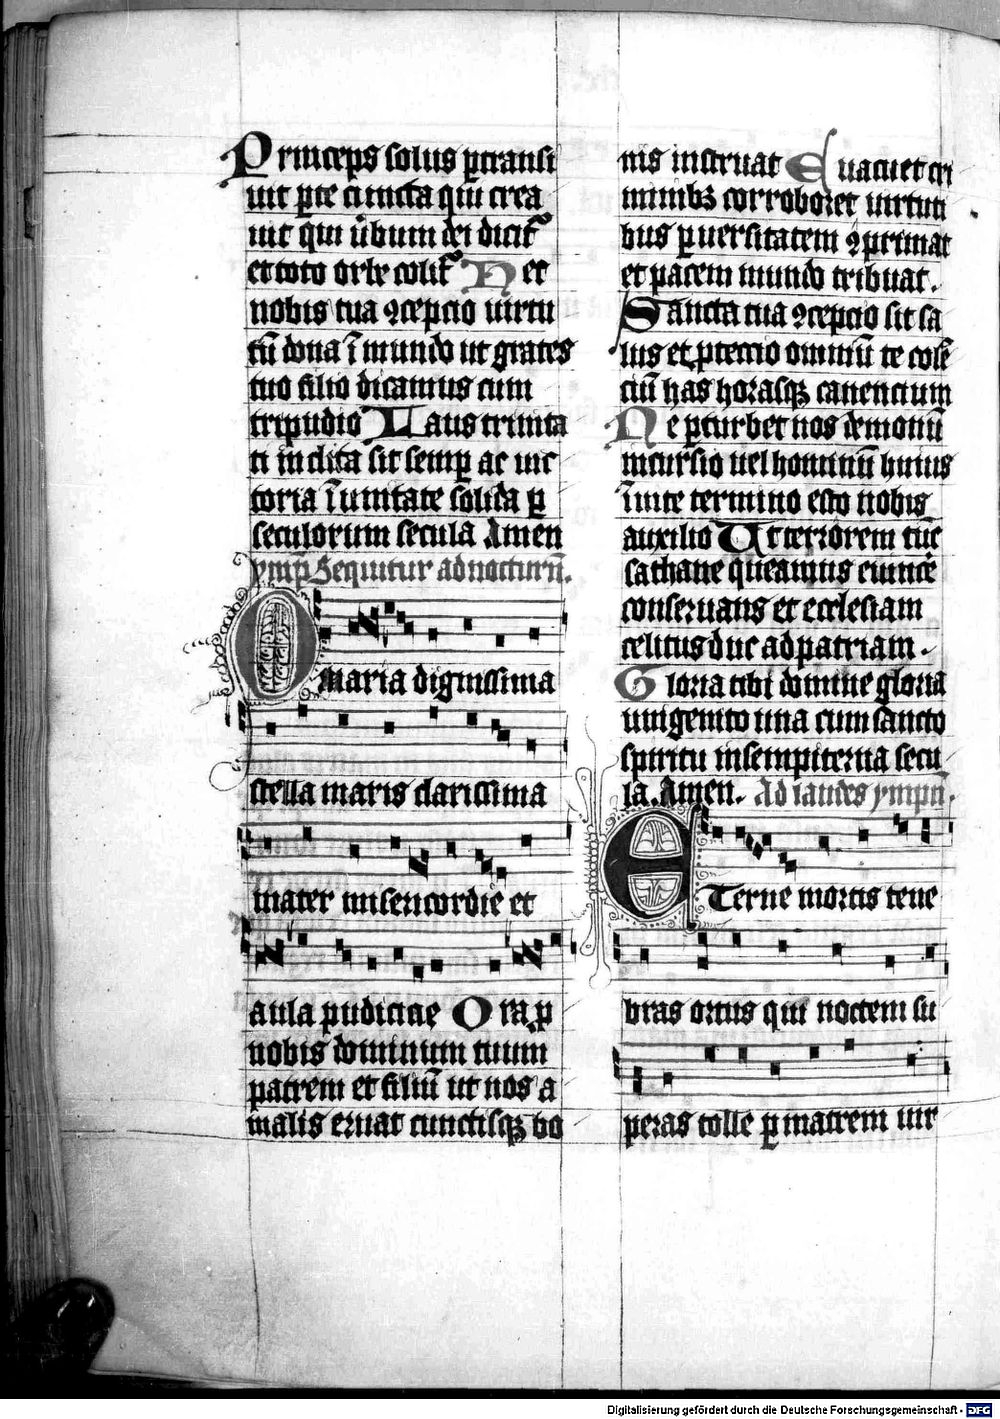 Princeps solus ꝑtransi
uit ꝑte cuncta qui crea
uit qui ůbum dei dicit᷑
et toto orbe colit᷑ Det
nobis tua ꝯcepcio uirtu
tū dona ī mundo ut grates
tuo filio dicamus cum
tripudio Laus trinita
ti indita sit semꝑ ac uic
toria ī unitate solida ꝑ
seculorum secula Amen
ymꝑ Sequitur ad nocturū.
O maria dignissima
stella maris clarissima
mater misericordie et
aula pudicitie Ora ꝓ
nobis dominum tuum
patrem et filiū ut nos a
malis eruat cunctisqꝫ bo
nis instruat Euacuet cri
minibꝫ corroboret uirtuti
bus ꝑuersitatem ꝯprimat
et pacem mundo tribuat.
Sancta tua ꝯcepcio sit sa
lus et ꝓteccio omniū te colē
ciū has horasqꝫ canencium
Ne ꝑturbet nos demonū
incursio uel hominū huius
ī uite termino esto nobis
auxilio Ut terrorem tūc
sathane queamus euincē
conseruans et ecclesiam
celitus duc ad patriam.
Gloria tibi domine gloria
unigenito una cum sancto
spiritu in sempiterna secu
la. Amen. Ad laudes ympn̄.
Eterne mortis tene
bras ortus qui noctem su
peras tolle ꝑ matrem uir
Digitalisierung gefördert durch die Deutsche Forschungsgemeinschaft - DFG